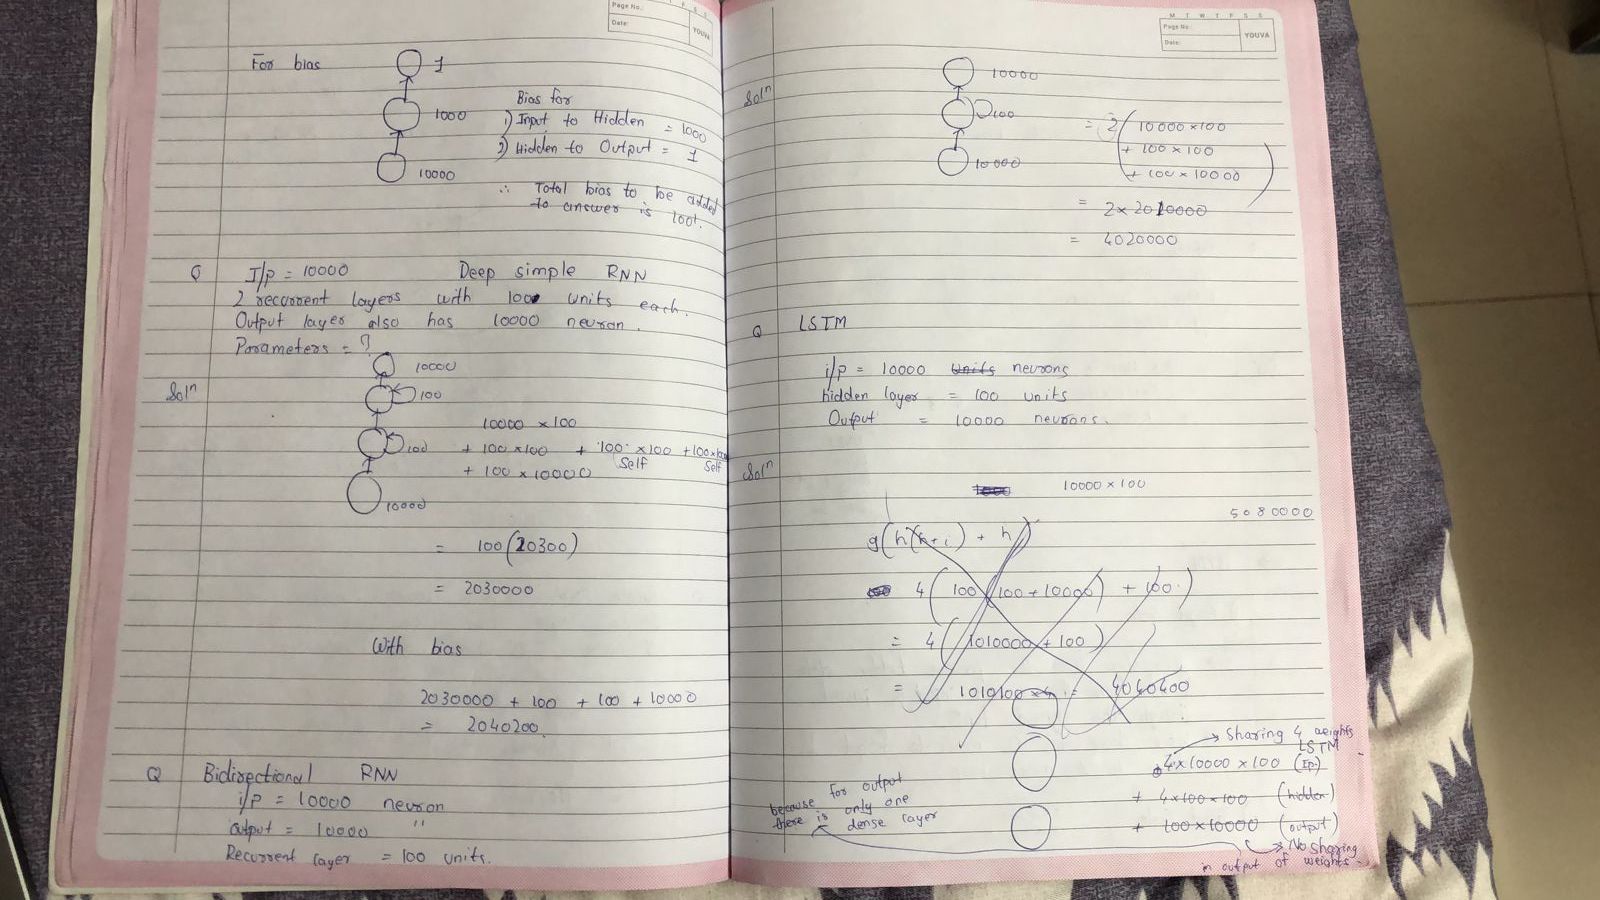 Page No.:
Date:
YOUVA
For bias
1
1000
10000
Bias for
1) Input to Hidden = 1000
2) Hidden to Output = 1
∴ Total bias to be added
to answer is 1001.
Q I/p = 10000 Deep simple RNN
2 recurrent layers with 100 units each.
Output layer also has 10000 neuron.
Parameters = ?
Solⁿ
10000
100
100
10000
10000 × 100
+ 100 × 100 + 100 × 100 + 100 × 100
Self Self
+ 100 × 10000
= 100 (20300)
= 2030000
With bias
2030000 + 100 + 100 + 10000
= 2040200.
Q Bidirectional RNN
i/p = 10000 neuron
output = 10000 "
Recurrent layer = 100 units.
M T W T F S S
Page No.:
Date:
YOUVA
Solⁿ
10000
100
10000
= 2 ( 10000 × 100
+ 100 × 100
+ 100 × 10000 )
= 2 × 2010000
= 4020000
Q LSTM
i/p = 10000 Units neurons
hidden layer = 100 units
Output = 10000 neurons.
Solⁿ
10000 × 100
5080000
g(h(h+i) + h)
4(100(100+10000) + 100)
= 4(1010000 + 100)
= 1010100 × 4 = 4040400
Sharing 4 weights
LSTM
4 × 10000 × 100 (Ip)
+ 4 × 100 × 100 (hidden)
+ 100 × 10000 (output)
No sharing
in output of weights
because for output
there is only one
dense layer